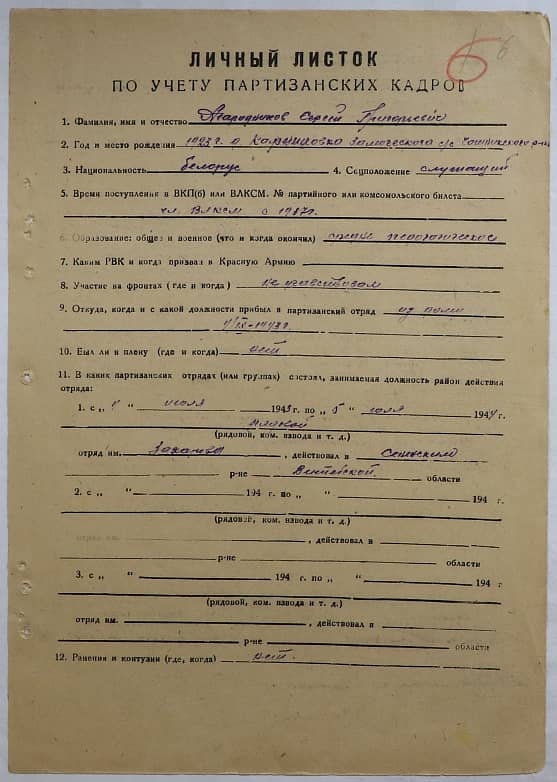 6
ЛИЧНЫЙ ЛИСТОК
ПО УЧЕТУ ПАРТИЗАНСКИХ КАДРОВ
1. Фамилия, имя и отчество Агародников Сергей Григорьевич
2. Год и место рождения 1923 г. д. с/с
3. Национальность белорус 4. Соцположение служащий
5. Время поступления в ВКП(б) или ВЛКСМ. № партийного или комсомольского билета
чл. ВЛКСМ с
6. Образование: общее и военное (что и когда окончил)
7. Каким РВК и когда призван в Красную Армию
8. Участие на фронтах (где и когда) не участвовал
9. Откуда, когда и с какой должности прибыл в партизанский отряд из
10. Был ли в плену (где и когда) нет
11. В каких партизанских отрядах (или группах) состоял, занимаемая должность район действия
отряда:
1. с „ " июля 1943 г. по „ 5 " июля 1944 г.
рядовой
(рядовой, ком. взвода и т. д.)
отряд им. Захарова, действовал в Сенненском
р-не Витебской области
2. с „ " 194 г. по „ " 194 г.
(рядовой, ком. взвода и т. д.)
отряд им. , действовал в
р-не области
3. с „ " 194 г. по „ " 194 г
(рядовой, ком. взвода и т. д.)
отряд им. , действовал в
р-не области
12. Ранения и контузии (где, когда) нет.